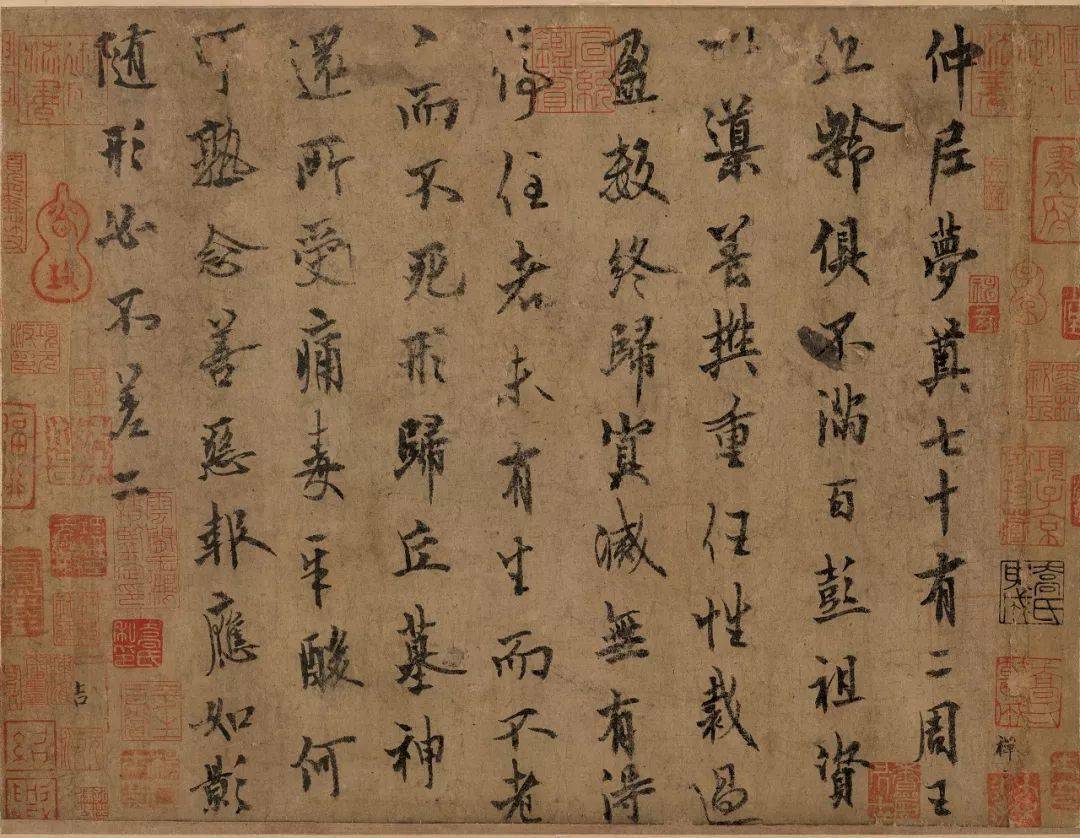 仲尼夢奠七十有二周王
九齡俱不滿百彭祖資
以導養樊重任性裁過
盈數終歸冥滅無有得
停住者未有生而不老
〻而不死形歸丘墓神
還所受痛毒辛酸何
可熟念善惡報應如影
隨形必不差二
項子京家珍藏
吉